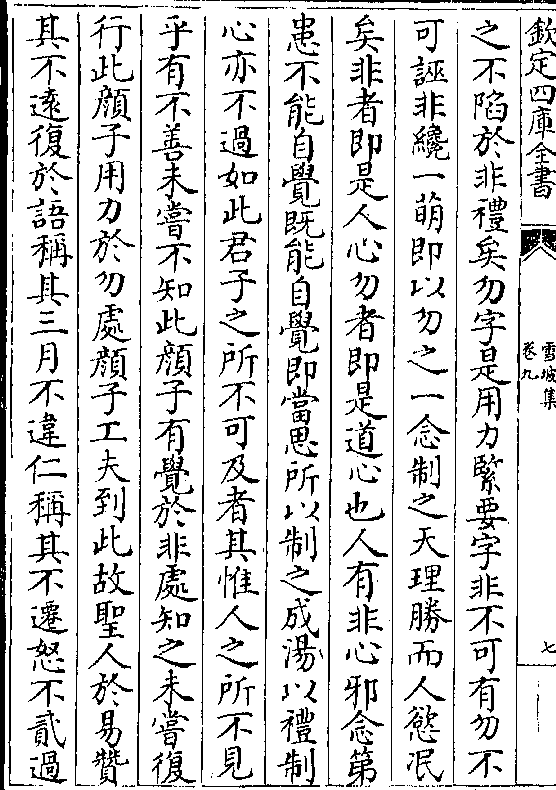 欽定四庫全書
雪坡集
卷九
七
之不陷於非禮矣勿字是用力緊要字非不可有勿不
可誣非纔一萌即以勿之一念制之天理勝而人慾泯
矣非者即是人心勿者即是道心也人有非心邪念第
患不能自覺既能自覺即當思所以制之成湯以禮制
心亦不過如此君子之所不可及者其惟人之所不見
乎有不善未嘗不知此顔子有覺於非處知之未嘗復
行此顔子用力於勿處顔子工夫到此故聖人於易贊
其不遠復於語稱其三月不違仁稱其不遷怒不貳過